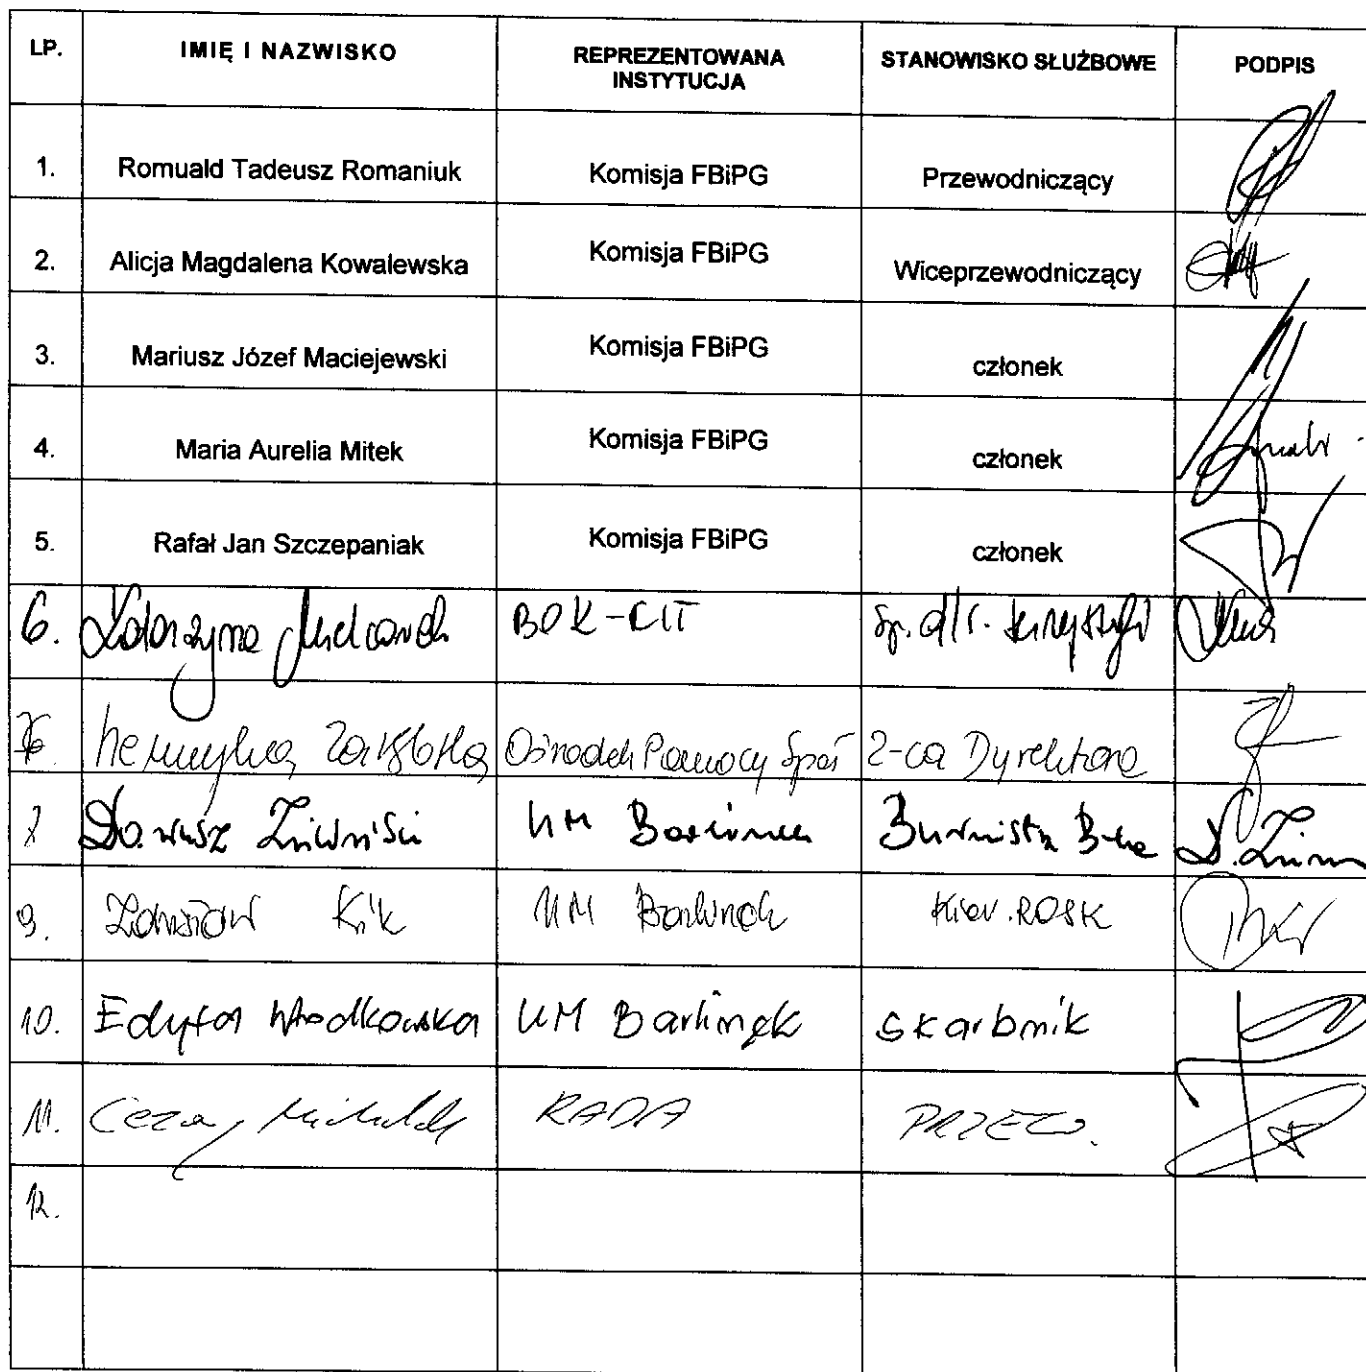 LP. IMIĘ I NAZWISKO REPREZENTOWANA INSTYTUCJA STANOWISKO SŁUŻBOWE PODPIS
1. Romuald Tadeusz Romaniuk Komisja FBiPG Przewodniczący
2. Alicja Magdalena Kowalewska Komisja FBiPG Wiceprzewodniczący
3. Mariusz Józef Maciejewski Komisja FBiPG członek
4. Maria Aurelia Mitek Komisja FBiPG członek
5. Rafał Jan Szczepaniak Komisja FBiPG członek
6. Katarzyna BOK-CIT Sp. d/s. turystyki
Ośrodek Pomocy Społ Z-ca Dyrektora
Dariusz Zieliński UM Barlinek Burmistrz
9. Zdzisław Kik UM Barlinek Kier. ROSK
10. Edyta Włodkowska UM Barlinek Skarbnik
11. Cezary Michalak RADA PRZEW.
12.